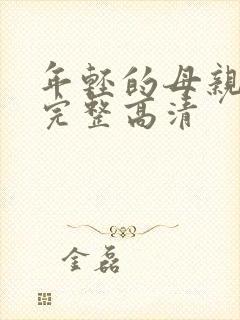 年轻的母親
完整高清
金磊